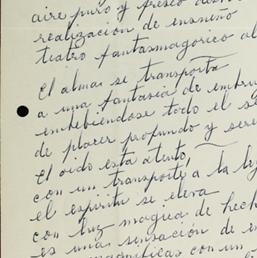 aire puro y fresco
realización de ensueño
teatro fantasmagorico al
El alma se transporta
a una fantasía de embru
embebiendose todo el se
de placer profundo y sere
El oido está atento,
con un transporte a la le
el espiritu se eleva
con luz magica de hech
es una sensación de en
magnificas con un